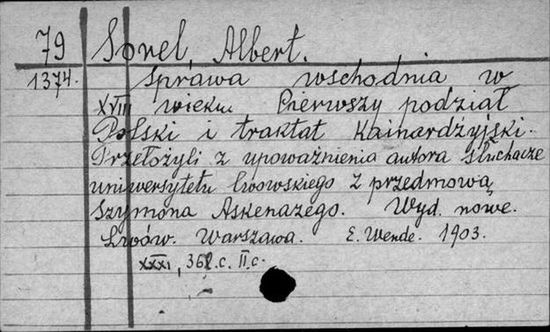 79 Sorel Albert.
1374. Sprawa wschodnia w
XVIII wieku. Pierwszy podział
Polski i traktat Kainardżyjski.
Przełożyli z upoważnienia autora słuchacze
uniwersytetu lwowskiego z przedmową
Szymona Askenazego. Wyd. nowe.
Lwów. Warszawa. E. Wende. 1903.
XXXI, 362.c. II.c.